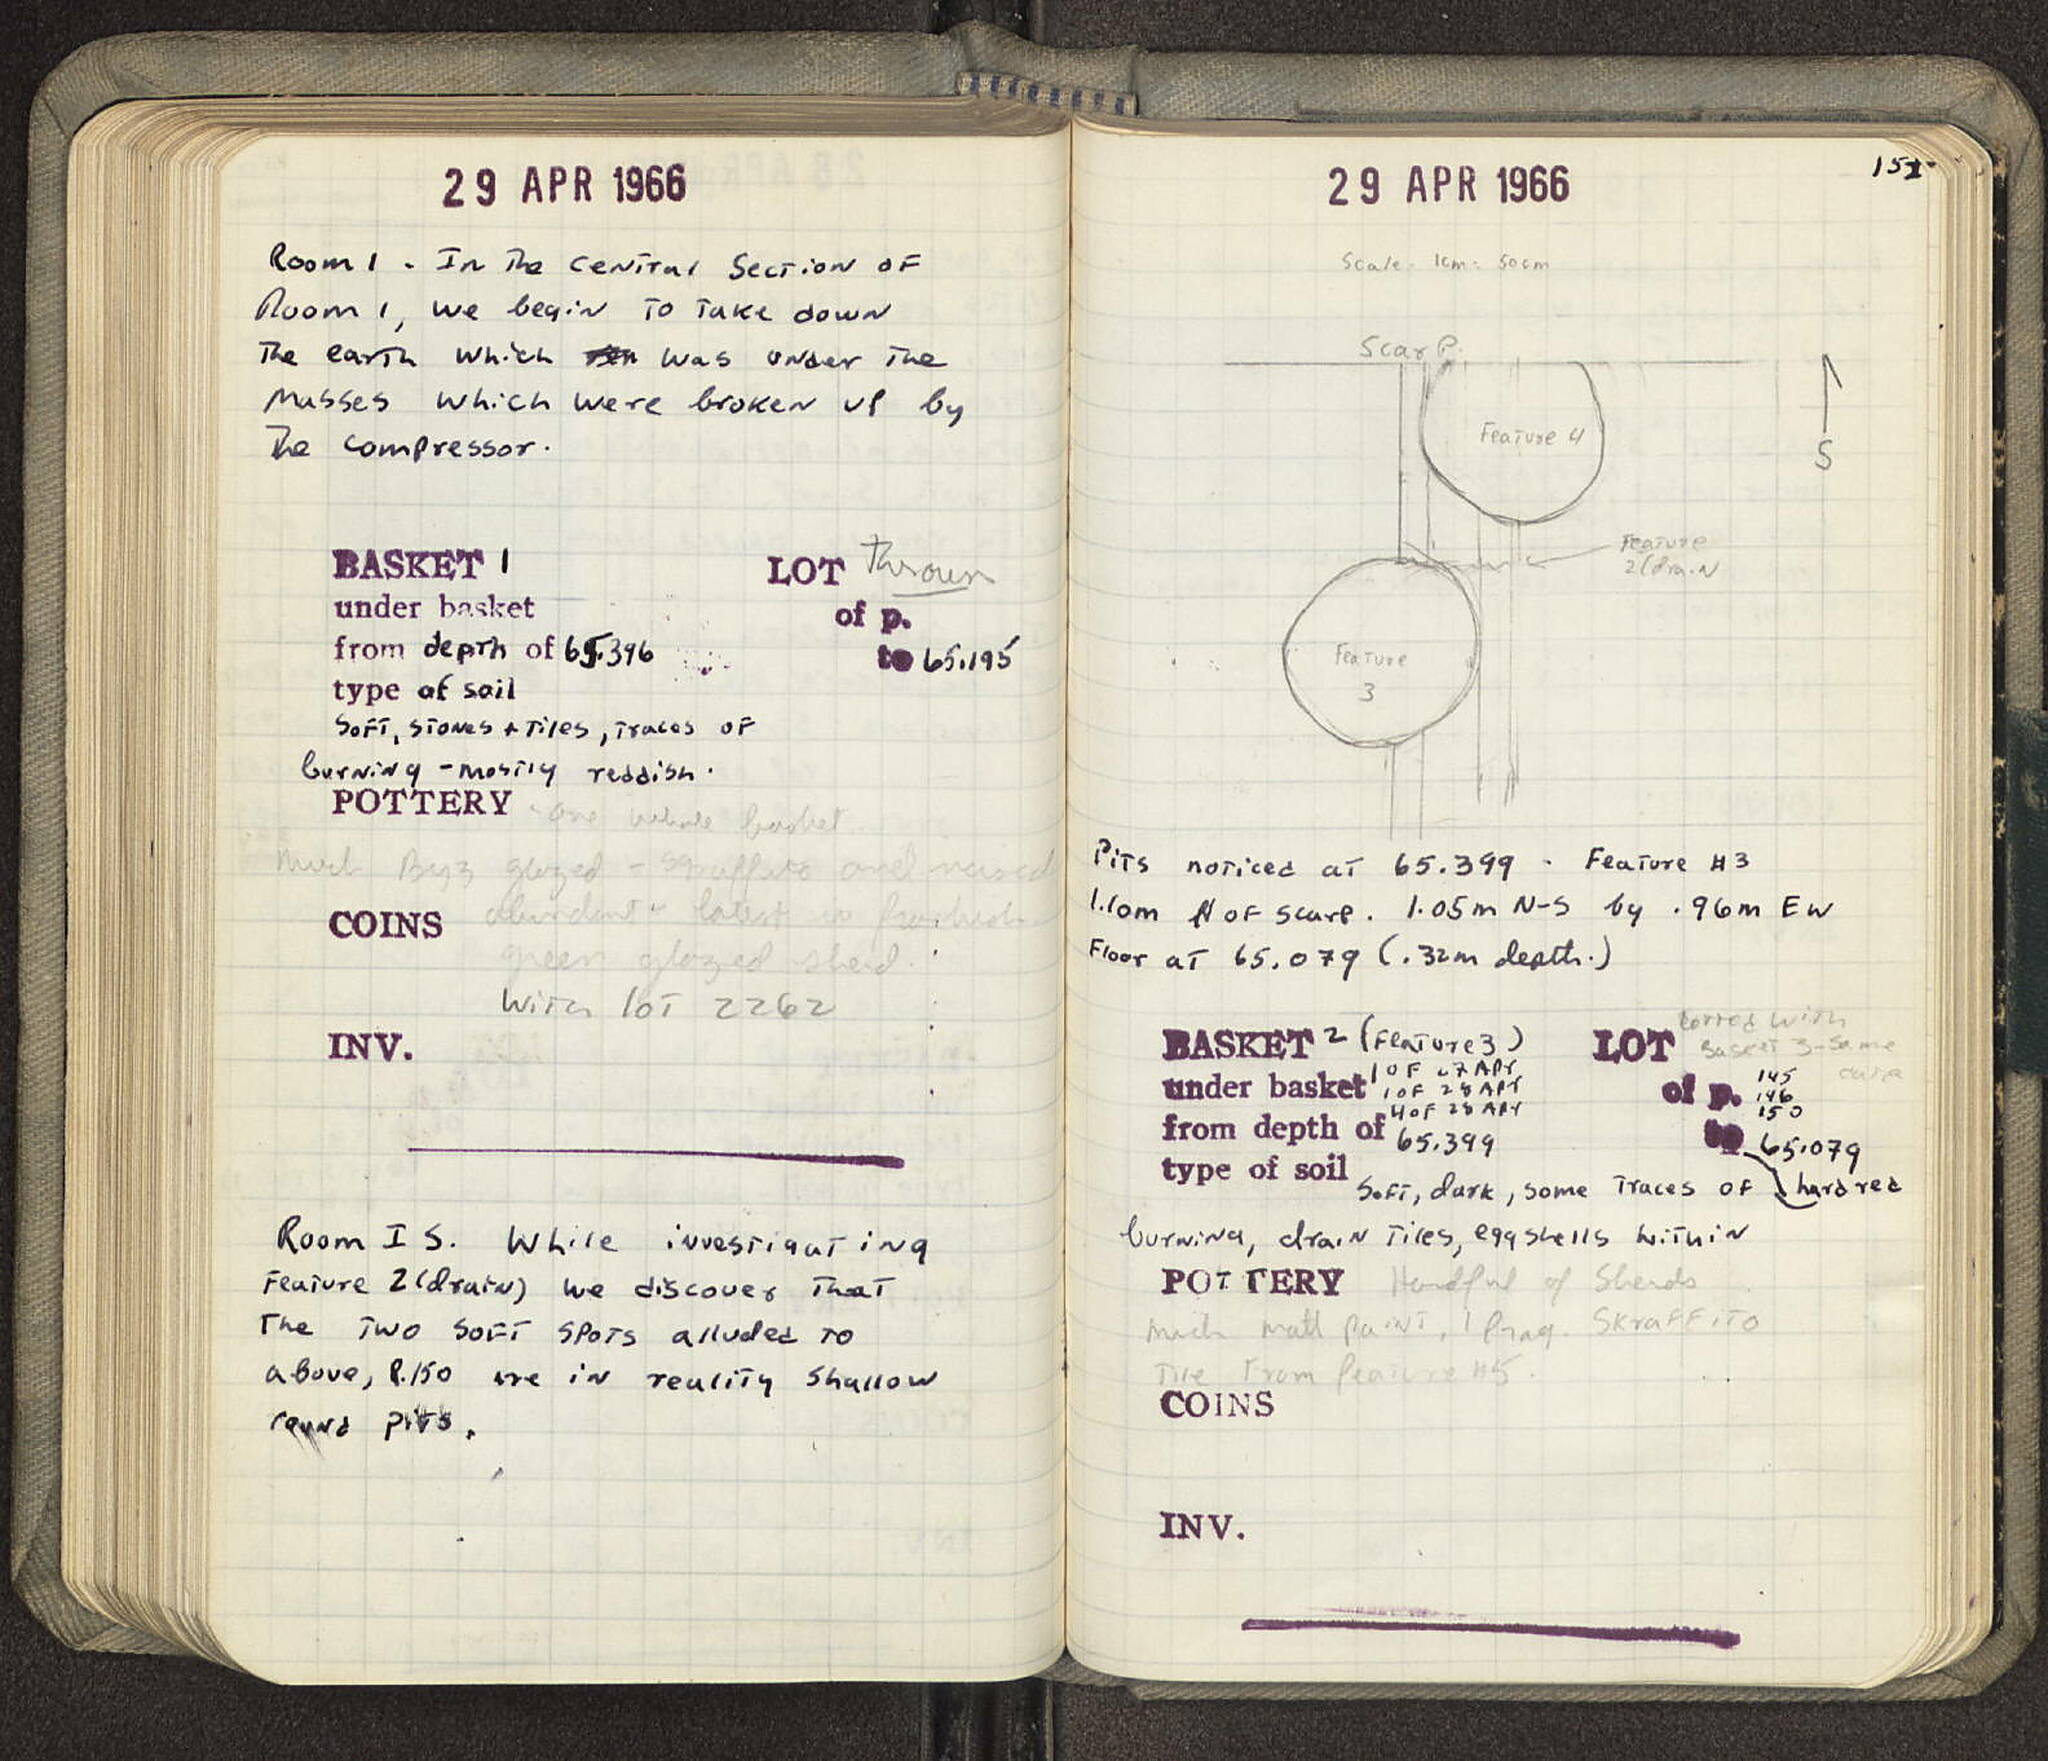 29 APR 1966
Room 1 - In The central Section of
Room 1, we begin to take down
The earth which was under the
masses which were broken up by
the compressor.
BASKET 1 LOT Thrown
under basket of p.
from depth of 65.396 to 65.195
type of soil
soft, stones + tiles, traces of
burning - mostly reddish.
POTTERY - one whole basket
much Byz glazed - sgraffito and
COINS abundant - latest is
green glazed sherd.
with lot 2262
INV.
Room I S. While investigating
feature 2 (drain) we discover that
the two soft spots alluded to
above, P.150 are in reality shallow
round pits.
151
29 APR 1966
Scale: 1cm = 50cm
Scarp.
Feature 4
S
Feature
2 (drain
Feature
3
Pits noticed at 65.399 . Feature #3
1.10m N of scarp. 1.05m N-S by .96m EW
Floor at 65.079 (.32m depth.)
BASKET 2 (Feature 3) LOT lotted with
Basket 3 - same
under basket 1 of 27 APR of p. 145
1 of 28 APR 146
4 of 28 APR 150
from depth of 65.399 to 65.079
type of soil soft, dark, some traces of hard red
burning, drain tiles, eggshells within
POTTERY Handful of Sherds
much matt paint, 1 frag. Skraffito
Tile from feature #5.
COINS
INV.